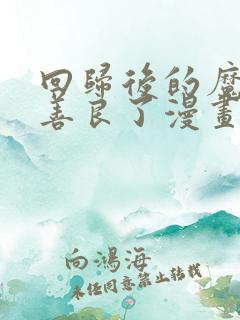 回歸後的魔
善良了漫畫
向鴻海
未經同意禁止轉載